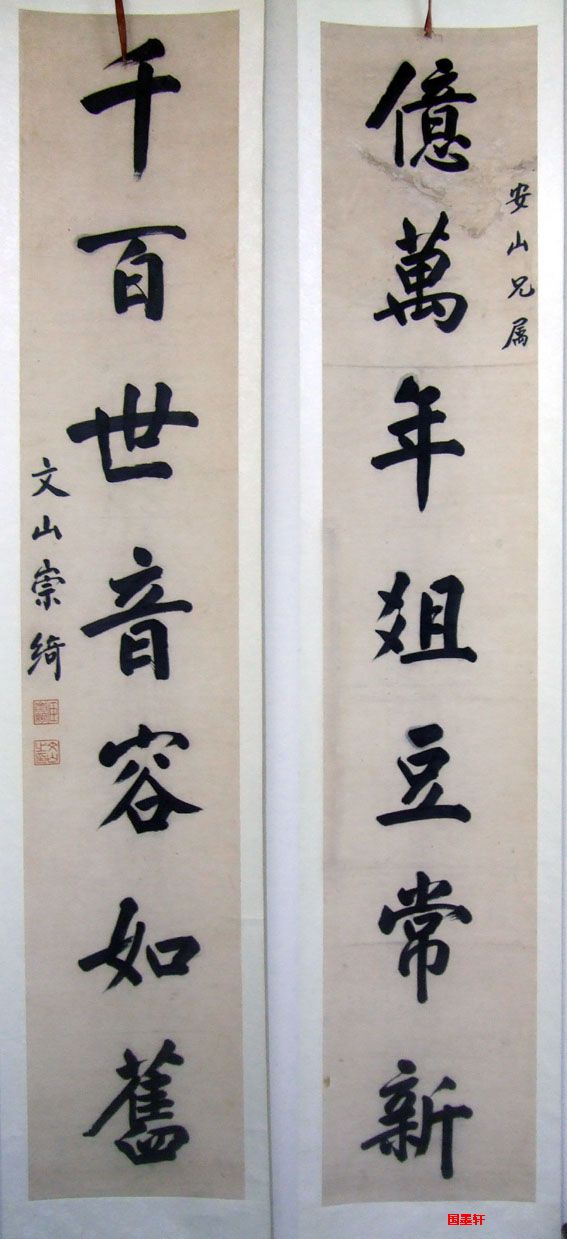 安山兄属
億萬年俎豆常新
千百世音容如舊
文山崇綺
国墨轩